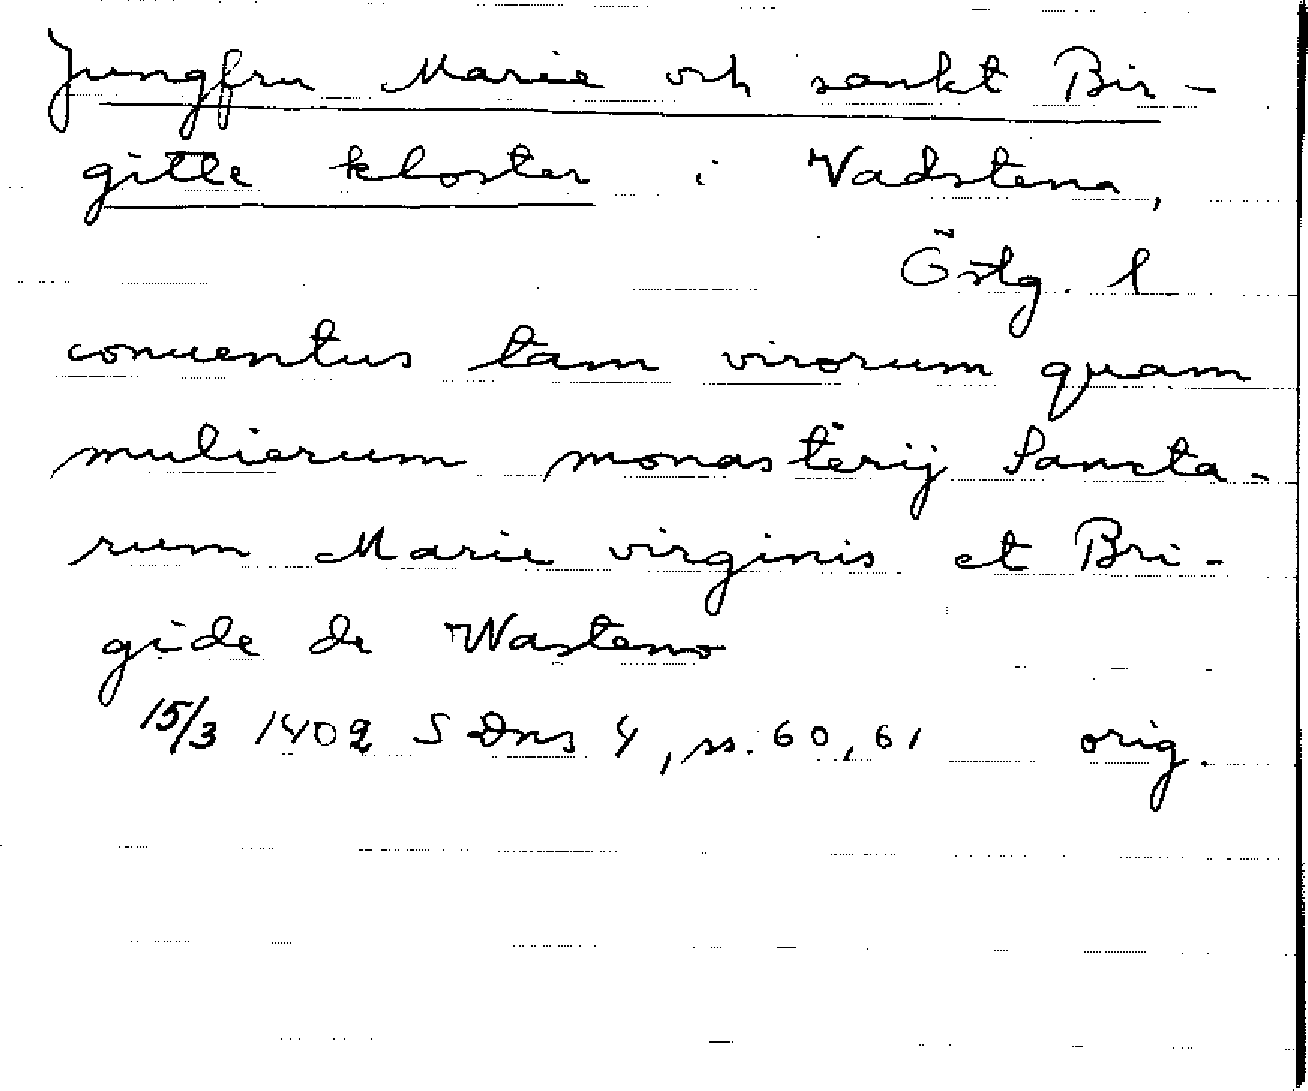 Jungfru Marie och sankt Bir-
gitte kloster i Vadstena,
Östg. l
conuentus tam virorum quam
mulierum monasterij Sancta-
rum Marie virginis et Bri-
gide de Wasteno
15/3 1402 SDns 4, ss. 60, 61 orig.